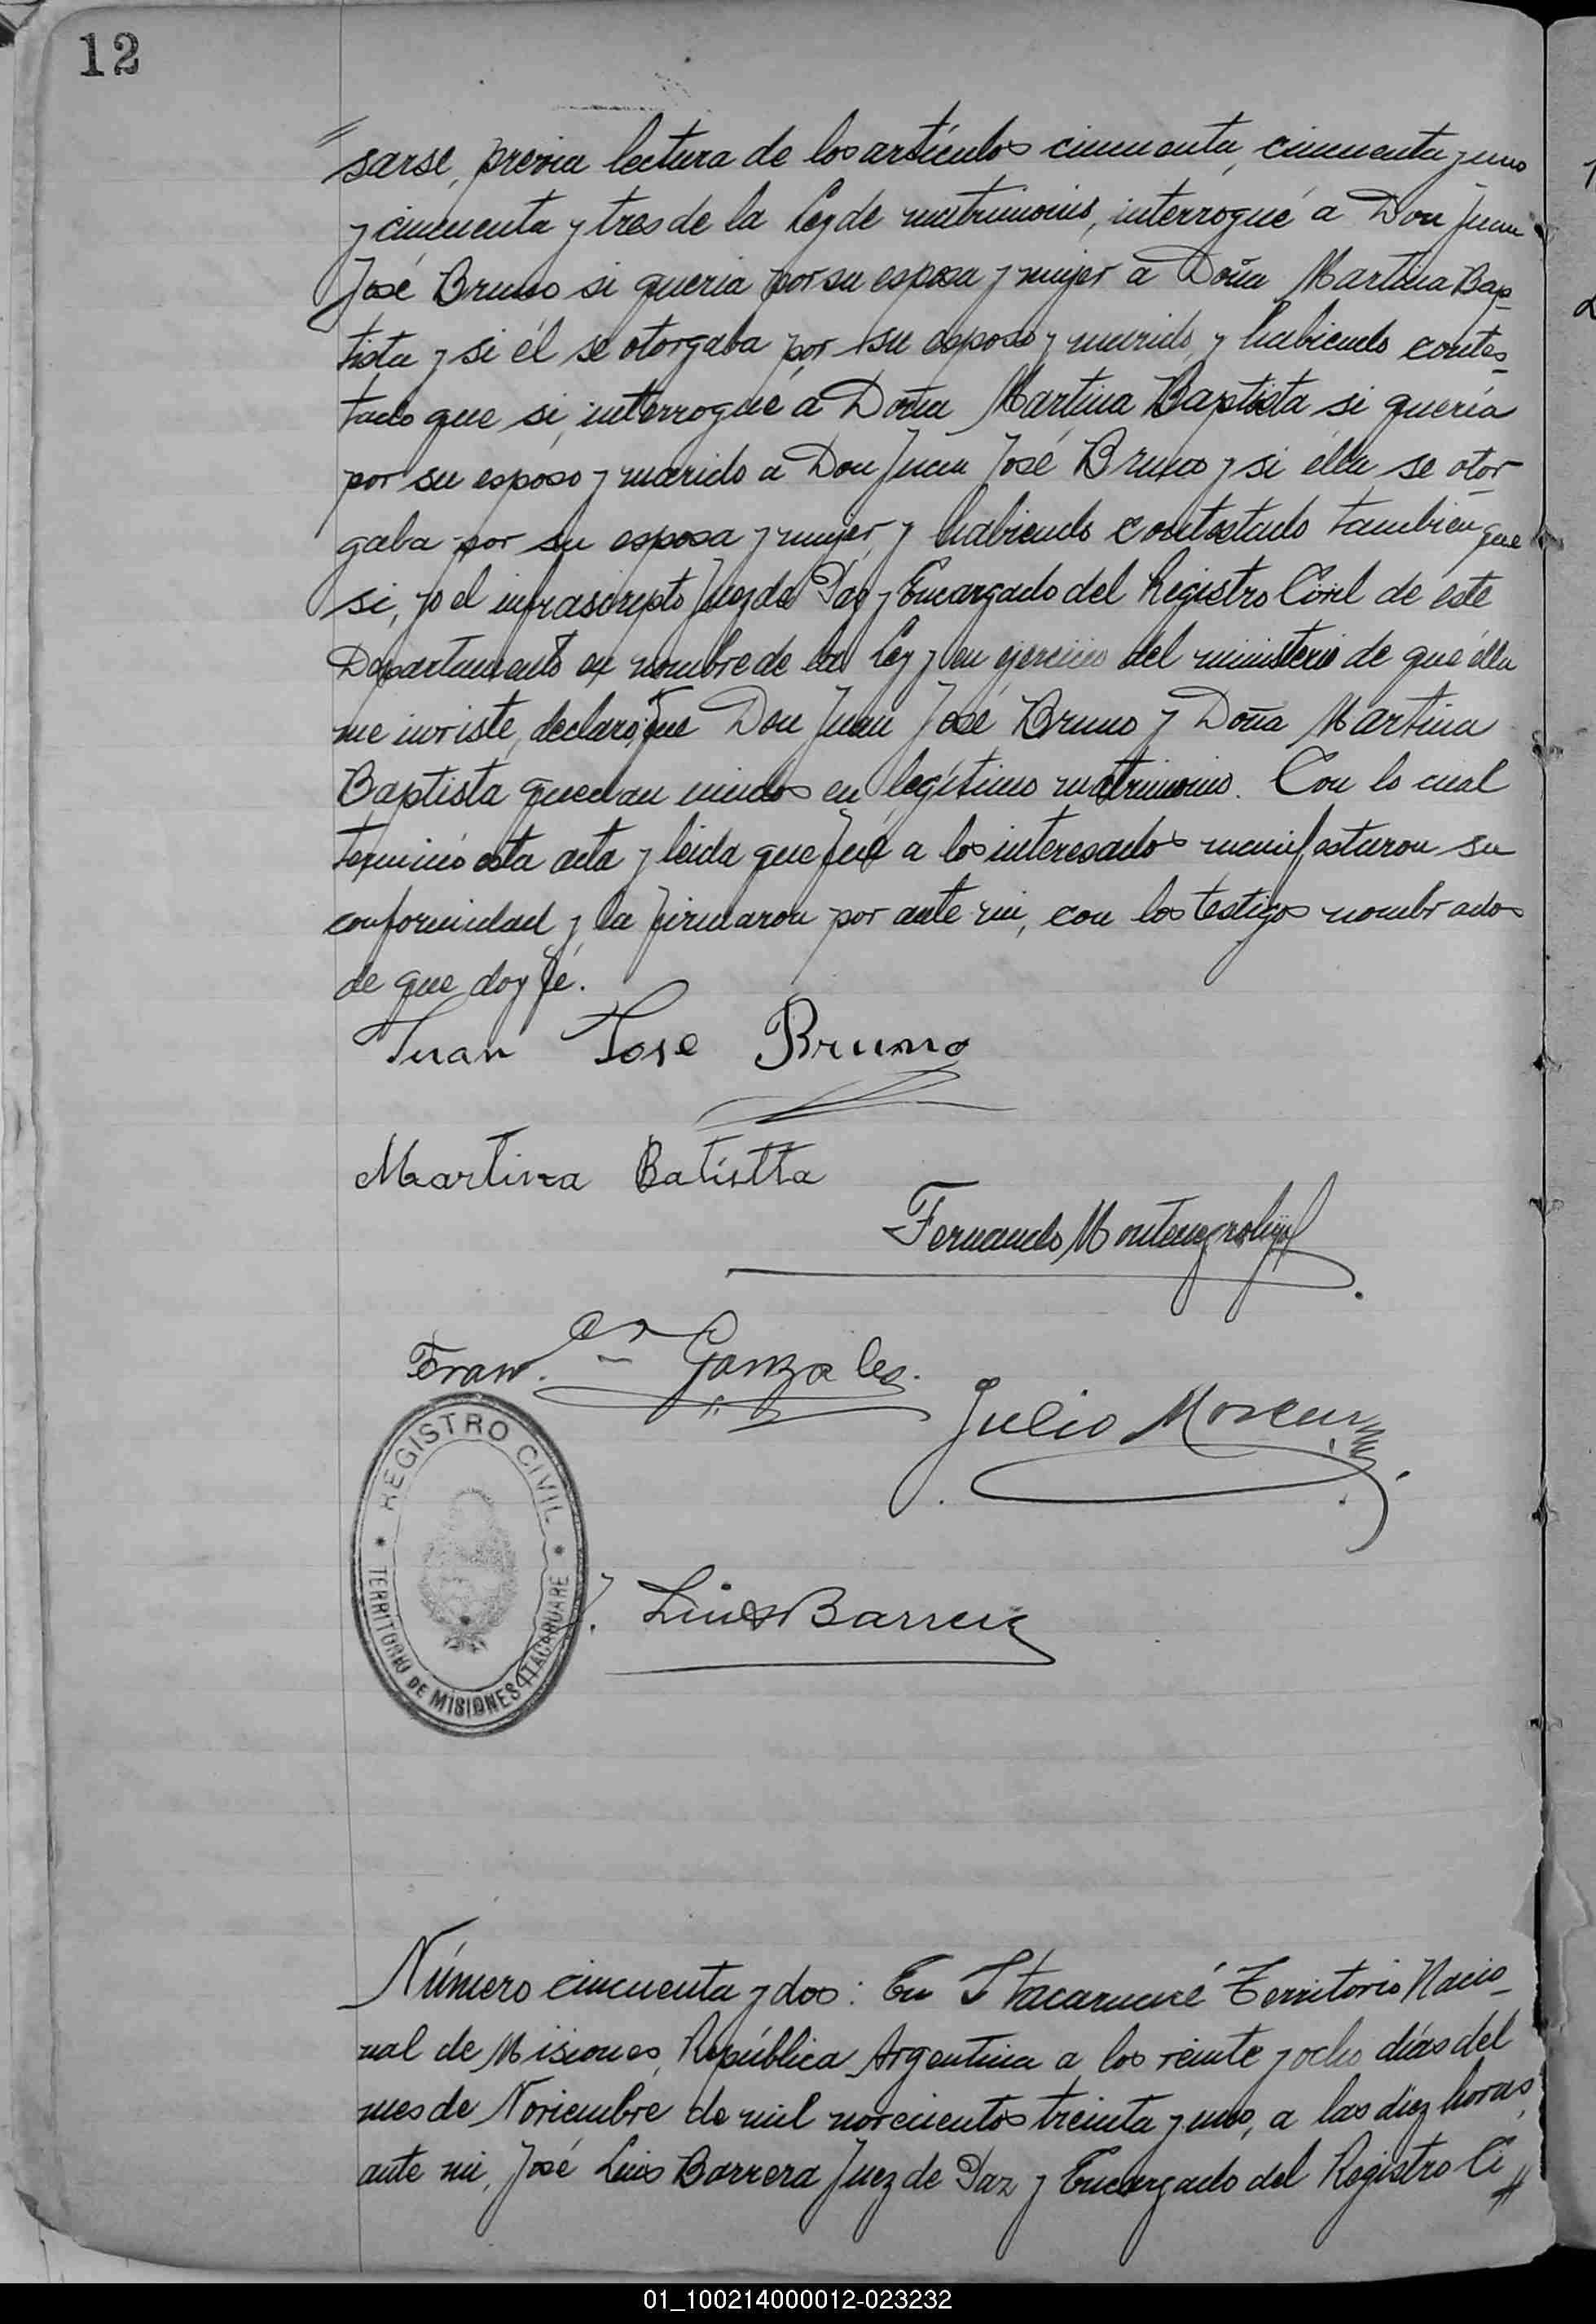 12
sarse, previa lectura de los artículos cincuenta, cincuenta y uno
y cincuenta y tres de la Ley de matrimonio, interrogué a Don Juan
José Bruno si queria por su esposa y mujer a Doña Martina Bap-
tista y si él se otorgaba por su esposo y marido, y habiendo contes-
tado que si, interrogué a Doña Martina Baptista si quería
por su esposo y marido a Don Juan José Bruno y si élla se otor-
gaba por su esposa y mujer, y habiendo contestado tambien que
si, yo el infrascripto Juez de Paz y Encargado del Registro Civil de este
Departamento en nombre de la Ley y en ejercicio del ministerio de que élla
me inviste, declaro, que Don Juan José Bruno y Doña Martina
Baptista quedan unidos en legítimo matrimonio. Con lo cual
terminó esta acta y leida que fué a los interesados manifestaron su
conformidad y la firmaron por ante mi, con los testigos nombrados
de que doy fé.
Juan Jose Bruno
Martina Batistta
Fernando Montenegro hijo
Fran.co Gonzales.
Julio
REGISTRO CIVIL
TERRITORIO DE MISIONES ITACARUARE
J. Luis Barrera
Número cincuenta y dos: En Itacaruaré Territorio Nacio-
nal de Misiones, República Argentina a los veinte y ocho días del
mes de Noviembre de mil novecientos treinta y uno, a las diez horas,
ante mi, José Luis Barrera Juez de Paz y Encargado del Registro Ci
01_100214000012-023232